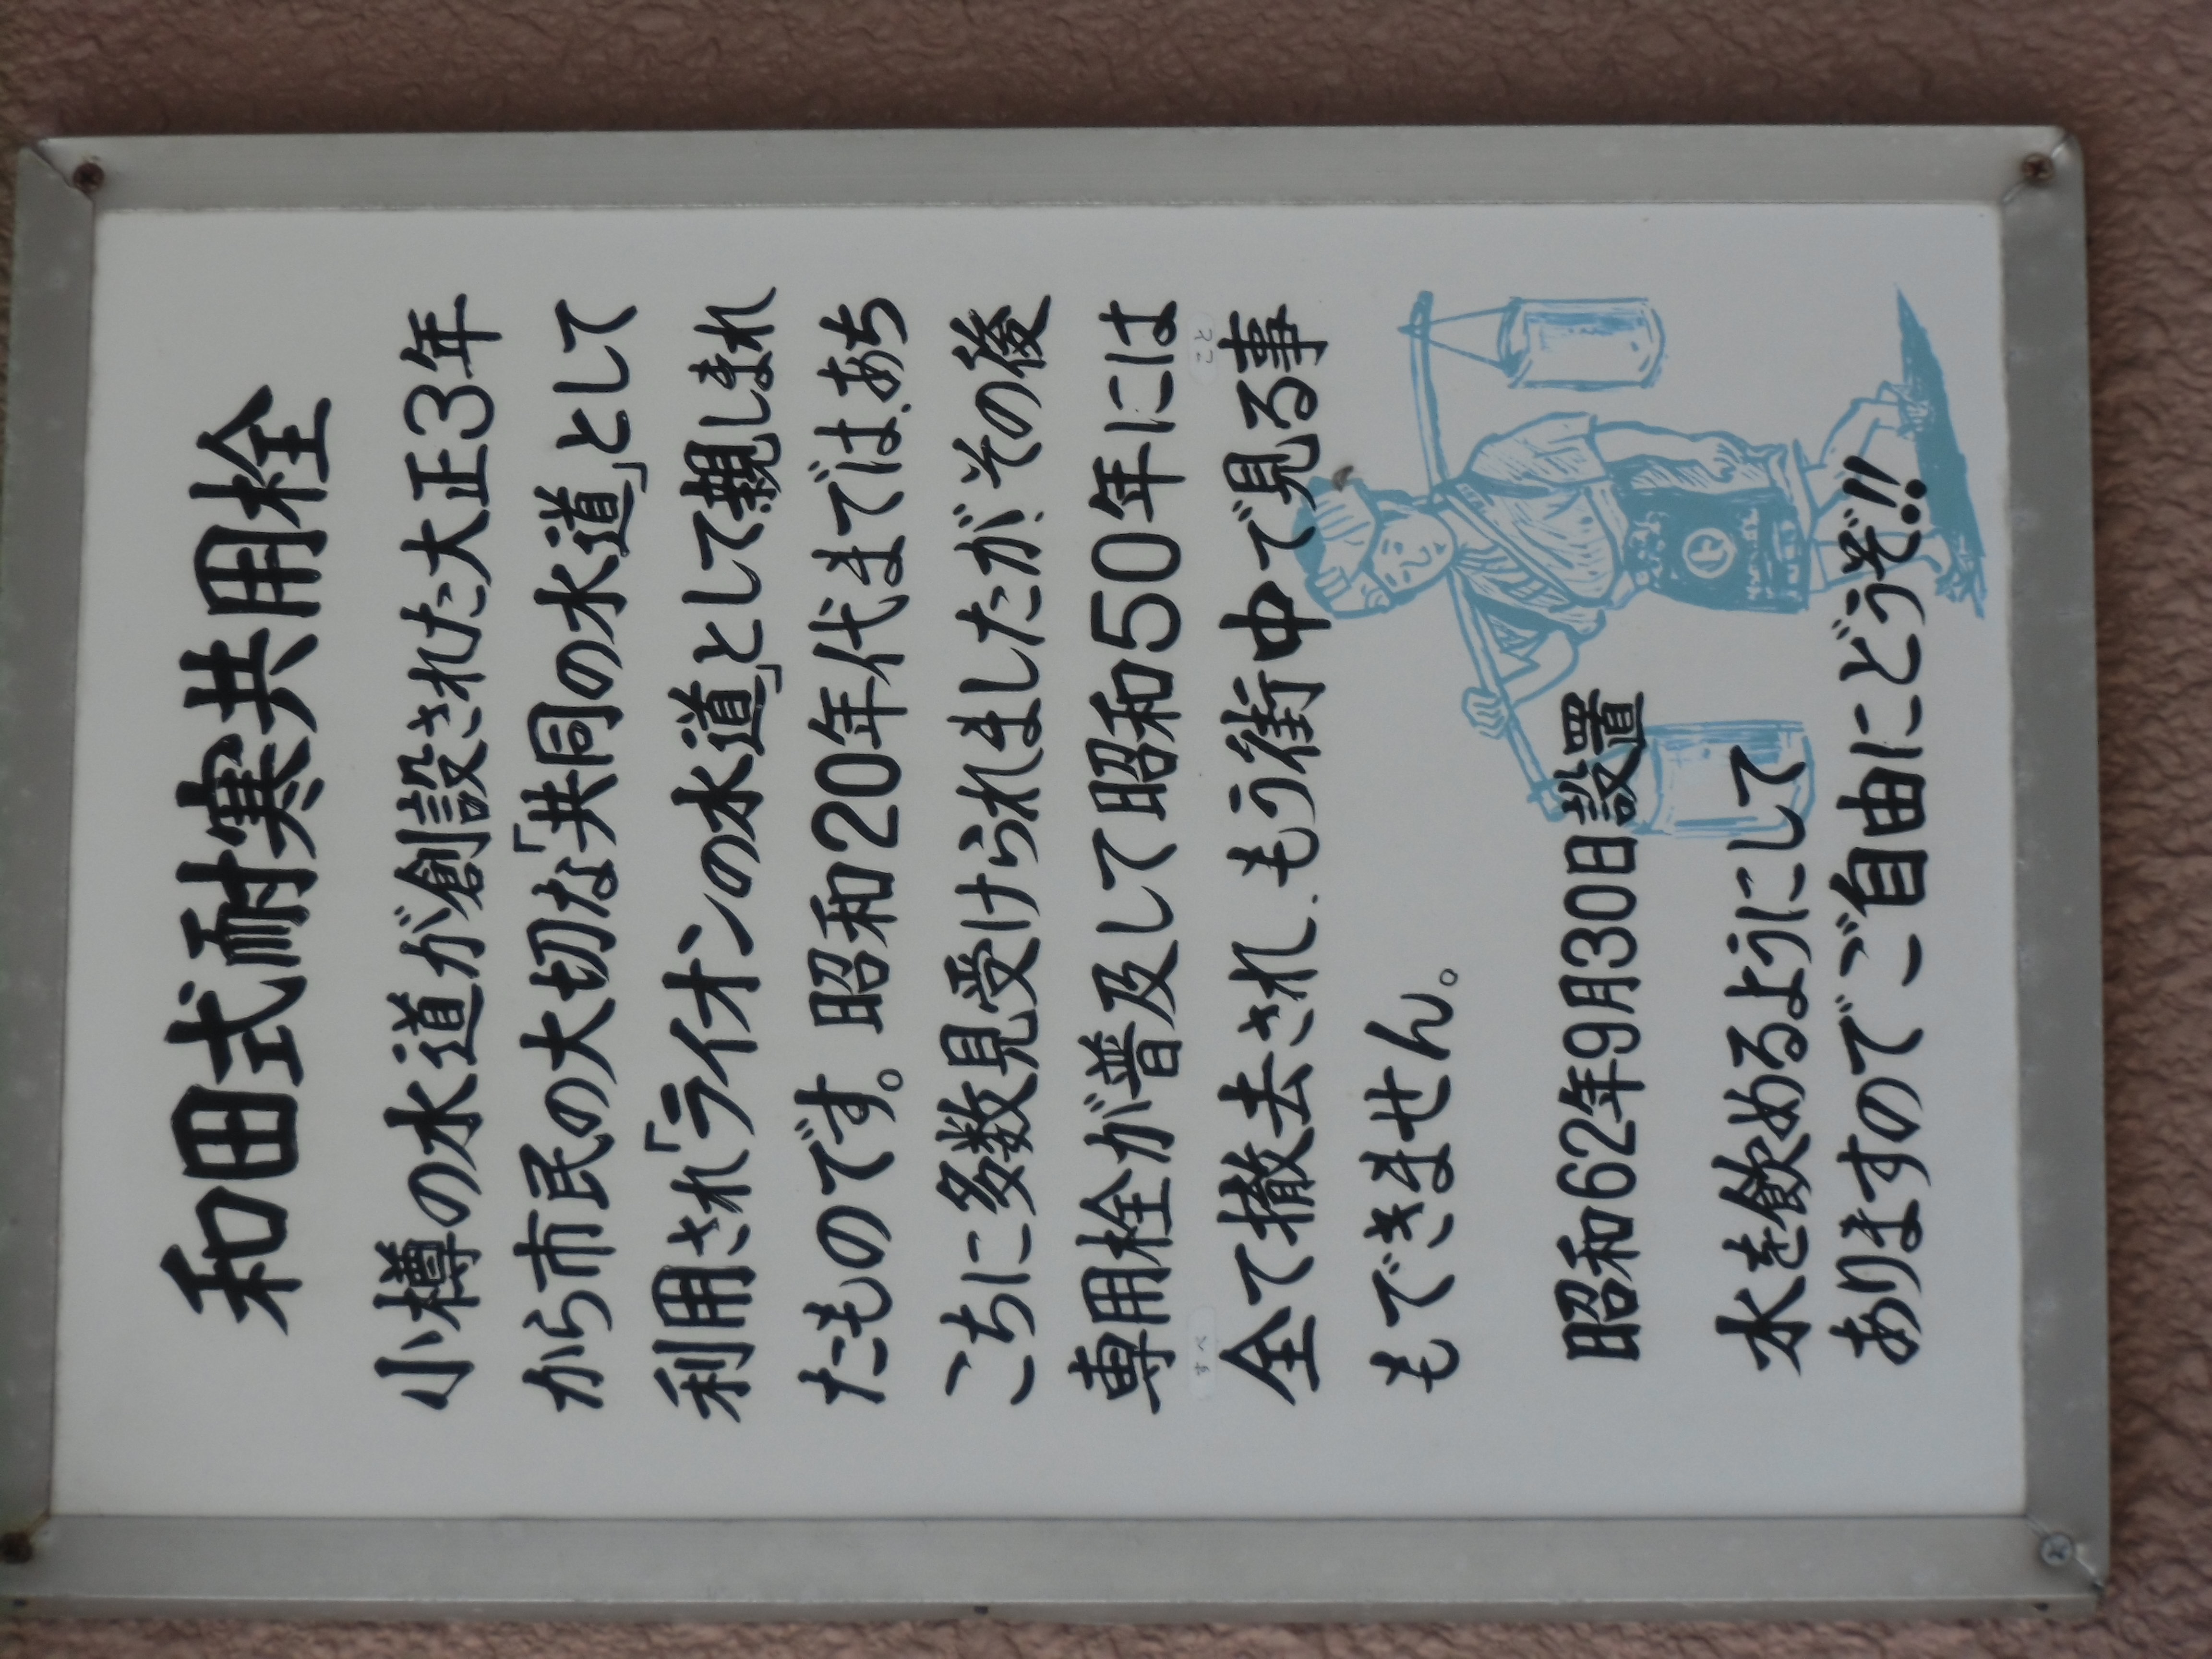 和田式耐寒共用栓
小樽の水道が創設された大正3年
から市民の大切な「共同の水道」として
利用され「ライオンの水道」として親しまれ
たものです。昭和20年代まではあち
こちに多数見受けられましたがその後
専用栓が普及して昭和50年には
すべ とこ
全て撤去され、もう街中で見る事
もできません。
昭和62年9月30日設置
水を飲めるようにして
ありますのでご自由にどうぞ!!